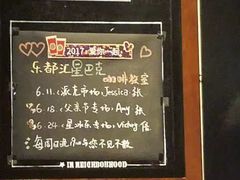 2017 爱你一起
乐都汇星巴克
咖啡教室
6.11 (派克市场) Jessica 张
6.18 (父亲节专场) Amy 张
6.24 (星冰乐专场) Vicky 信
每周日晚 与您不见不散
IN NEIGHBOURHOOD